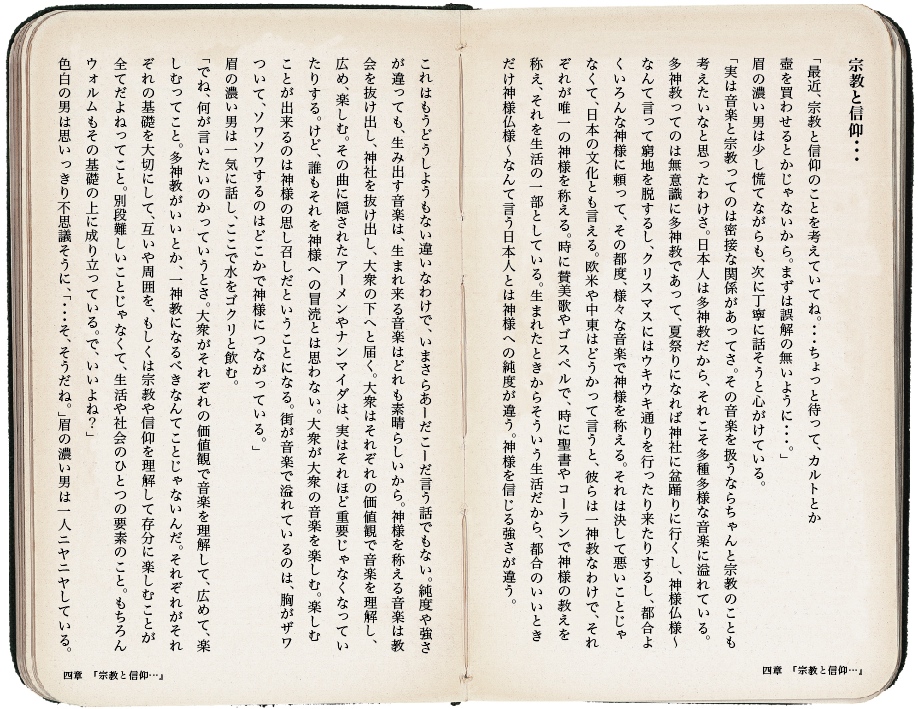 宗教と信仰・・・
「最近、宗教と信仰のことを考えていてね。・・・ちょっと待って、カルトとか
壺を買わせるとかじゃないから。まずは誤解の無いように・・・・。」
眉の濃い男は少し慌てながらも、次に丁寧に話そうと心がけている。
「実は音楽と宗教ってのは密接な関係があってさ。その音楽を扱うならちゃんと宗教のことも
考えたいなと思ったわけさ。日本人は多神教だから、それこそ多種多様な音楽に溢れている。
多神教ってのは無意識に多神教であって、夏祭りになれば神社に盆踊りに行くし、神様仏様〜
なんて言って窮地を脱するし、クリスマスにはウキウキ通りを行ったり来たりするし、都合よ
くいろんな神様に頼って、その都度、様々な音楽で神様を称える。それは決して悪いことじゃ
なくて、日本の文化とも言える。欧米や中東はどうかって言うと、彼らは一神教なわけで、それ
ぞれが唯一の神様を称える。時に賛美歌やゴスペルで、時に聖書やコーランで神様の教えを
称え、それを生活の一部としている。生まれたときからそういう生活だから、都合のいいとき
だけ神様仏様〜なんて言う日本人とは神様への純度が違う。神様を信じる強さが違う。
四章 『宗教と信仰…』
これはもうどうしようもない違いなわけで、いまさらあーだこーだ言う話でもない。純度や強さ
が違っても、生み出す音楽は、生まれ来る音楽はどれも素晴らしいから。神様を称える音楽は教
会を抜け出し、神社を抜け出し、大衆の下へと届く。大衆はそれぞれの価値観で音楽を理解し、
広め、楽しむ。その曲に隠されたアーメンやナンマイダは、実はそれほど重要じゃなくなってい
たりする。けど、誰もそれを神様への冒涜とは思わない。大衆が大衆の音楽を楽しむ。楽しむ
ことが出来るのは神様の思し召しだということになる。街が音楽で溢れているのは、胸がザワ
ついて、ソワソワするのはどこかで神様につながっている。」
眉の濃い男は一気に話し、ここで水をゴクリと飲む。
「でね、何が言いたいのかっていうとさ。大衆がそれぞれの価値観で音楽を理解して、広めて、楽
しむってこと。多神教がいいとか、一神教になるべきなんてことじゃないんだ。それぞれがそれ
ぞれの基礎を大切にして、互いや周囲を、もしくは宗教や信仰を理解して存分に楽しむことが
全てだよねってこと。別段難しいことじゃなくて、生活や社会のひとつの要素のこと。もちろん
ウォルムもその基礎の上に成り立っている。で、いいよね？」
色白の男は思いっきり不思議そうに、「・・・・そ、そうだね。」眉の濃い男は一人ニヤニヤしている。
四章 『宗教と信仰…』